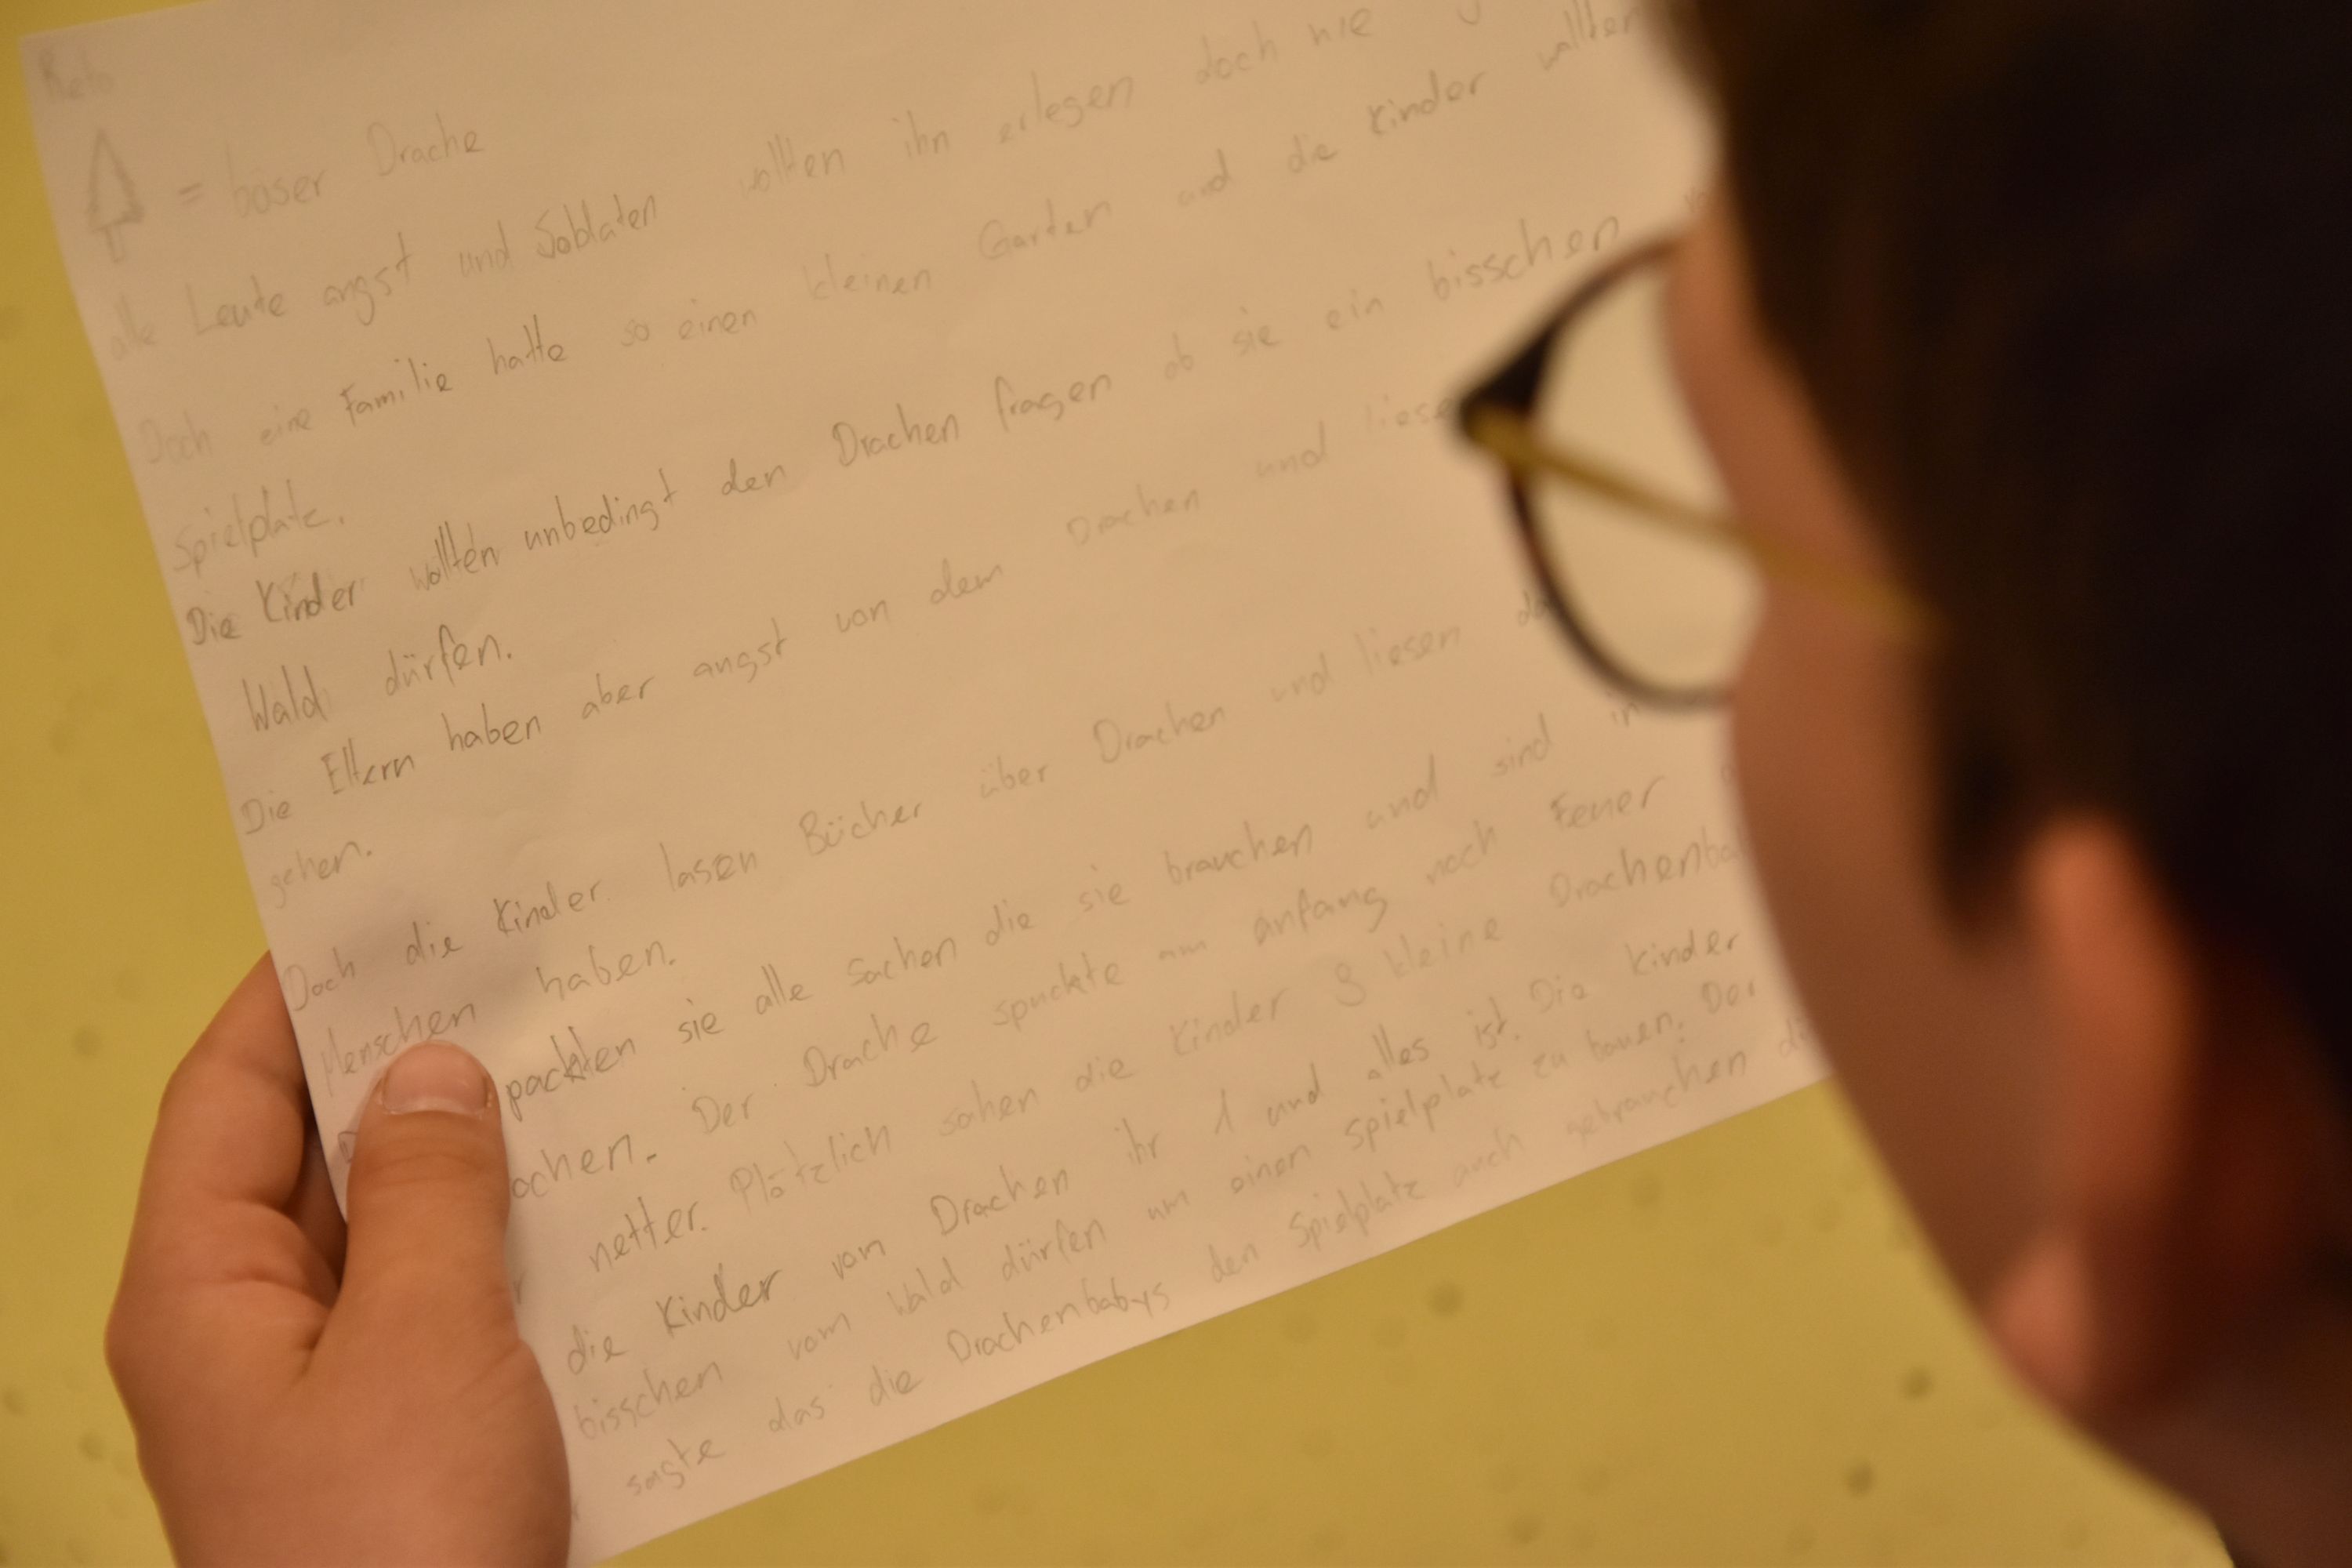 Reto
= böser Drache
alle Leute angst und Soldaten wollten ihn erlegen doch nie
Doch eine Familie hatte so einen kleinen Garten und die Kinder wollten
Spielplatz.
Die Kinder wollten unbedingt den Drachen fragen ob sie ein bisschen
Wald dürfen.
Die Eltern haben aber angst von dem Drachen und
gehen.
Doch die Kinder lasen Bücher über Drachen und liesen
Menschen haben.
packten sie alle sachen die sie brauchen und sind in
Der Drache spuckte am anfang noch Feuer
netter. Plötzlich sahen die Kinder 8 kleine
die Kinder vom Drachen ihr 1 und alles ist. Die Kinder
bisschen vom Wald dürfen um einen spielplatz zu bauen. Der
sagte das die Drachenbabys den Spielplatz auch gebrauchen